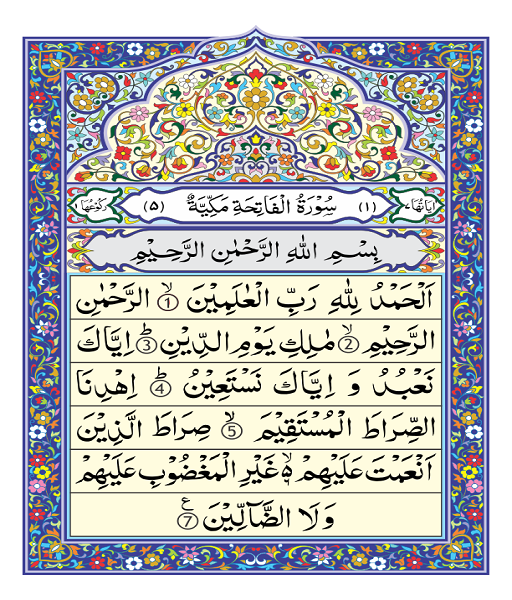 اٰیَاتُهَا ٧ (١) سُوْرَةُ الْفَاتِحَةِ مَكِّیَّةٌ (٥) رُكُوْعُهَا ١
بِسْمِ اللّٰهِ الرَّحْمٰنِ الرَّحِیْمِ
اَلْحَمْدُ لِلّٰهِ رَبِّ الْعٰلَمِیْنَ ۙ 1 الرَّحْمٰنِ
الرَّحِیْمِ ۙ 2 مٰلِكِ یَوْمِ الدِّیْنِ ؕ 3 اِیَّاكَ
نَعْبُدُ وَ اِیَّاكَ نَسْتَعِیْنُ ؕ 4 اِهْدِنَا
الصِّرَاطَ الْمُسْتَقِیْمَ ۙ 5 صِرَاطَ الَّذِیْنَ
اَنْعَمْتَ عَلَیْهِمْ ۙ۬ غَیْرِ الْمَغْضُوْبِ عَلَیْهِمْ
وَلَا الضَّآلِّیْنَ ع 7